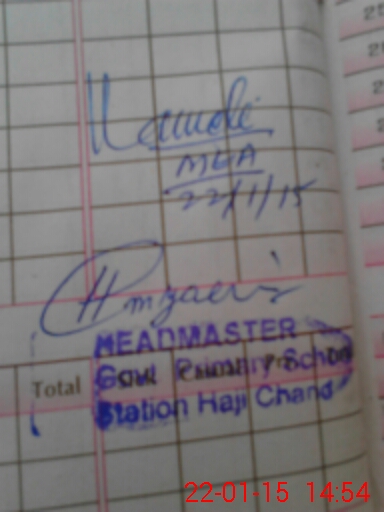 MEA
22/1/15
HEADMASTER
Govt Primary School
Total
Station Haji Chand
22-01-15 14:54